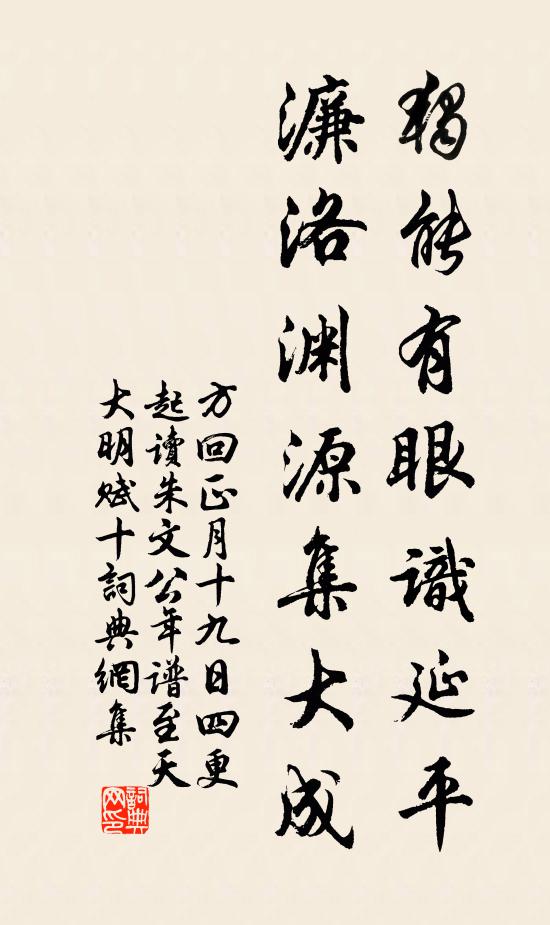 獨能有眼識延平
濂洛渊源集大成
方回正月十九日四更
起讀朱文公年谱至天
大明赋十詞典網集
詞典
网印